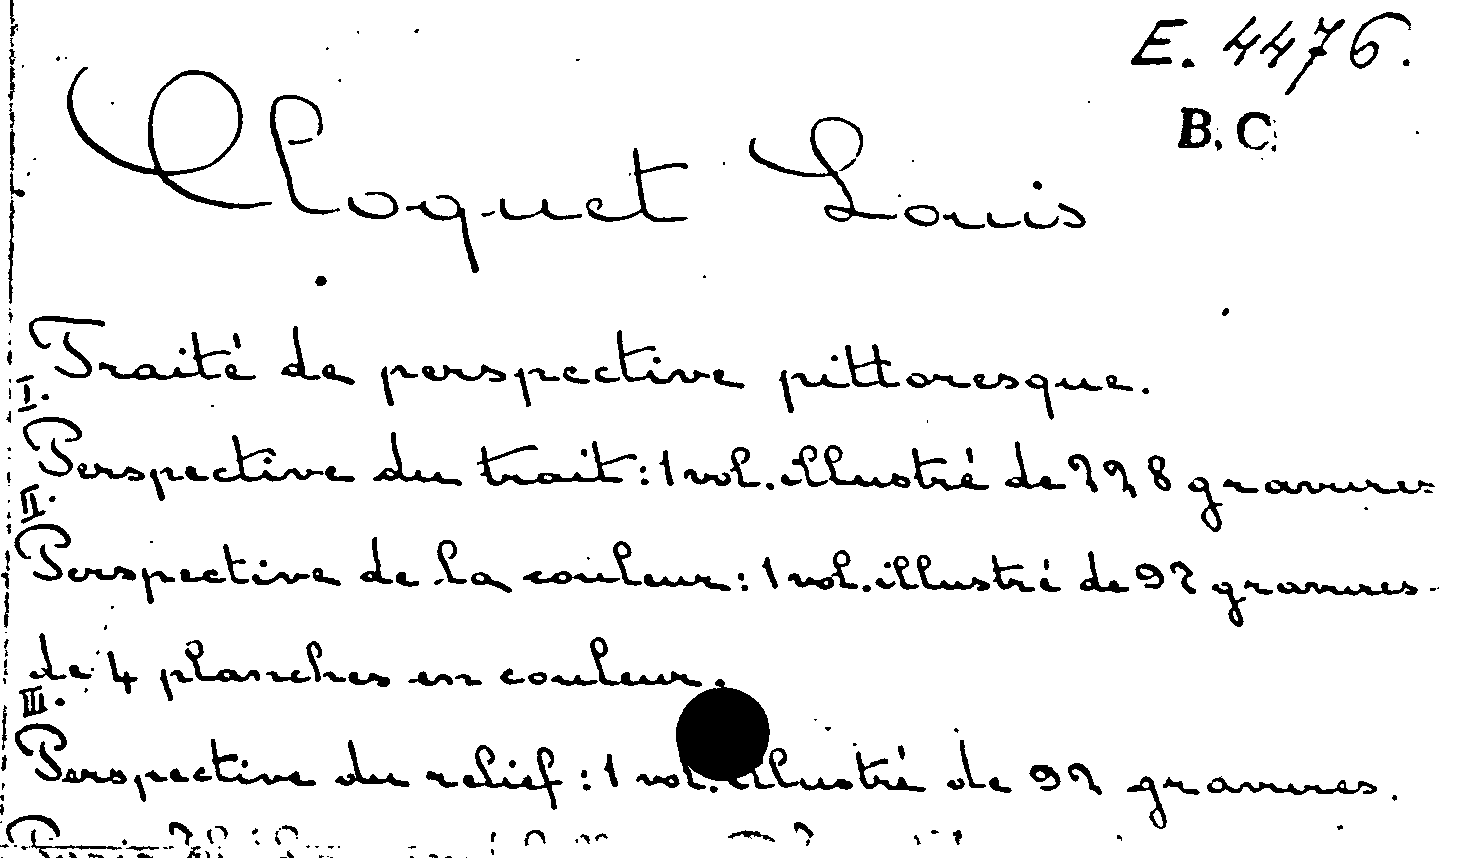 E. 4476.
B. C.
Cloquet Louis
Traité de perspective pittoresque.
I.
Perspective du trait : 1 vol. illustré de 228 gravures
II.
Perspective de la couleur : 1 vol. illustré de 92 gravures
de 4 planches en couleur.
III.
Perspective du relief : 1 vol. illustré de 92 gravures.